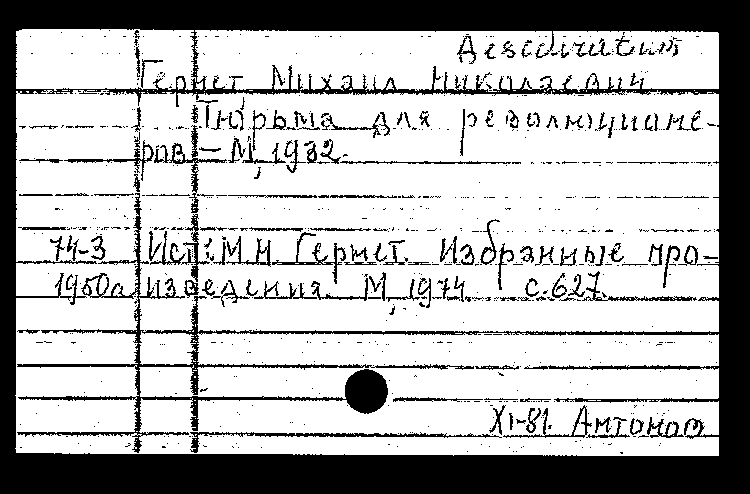 Desediratum
Гернет, Михаил Николаевич
Тюрьма для революционе-
ров. — М, 1932.
74-3 Ист: М.Н. Гернет. Избранные про-
1950а изведения. М, 1974. с.627.
XI-81. Антонов